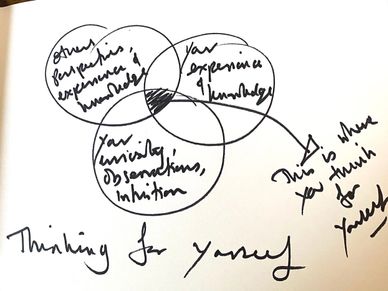 Others
perspectives,
experience &
knowledge
Your
experience
&
knowledge
Your
curiosity,
observations,
intuition
This is where
you think
for
yourself
Thinking for yourself